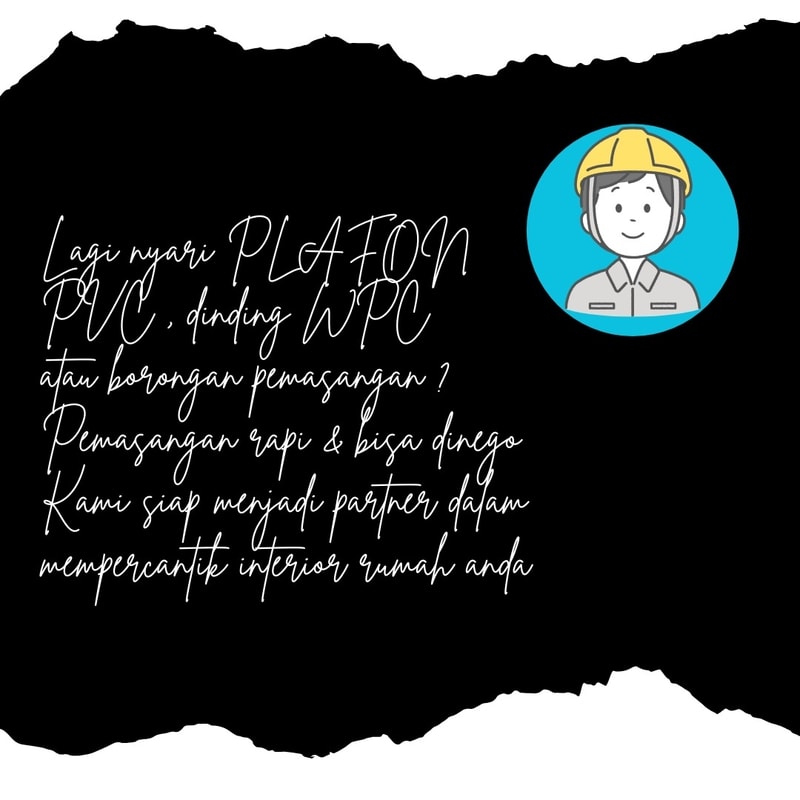 Lagi nyari PLAFON
PVC, dinding WPC
atau borongan pemasangan ?
Pemasangan rapi & bisa dinego
Kami siap menjadi partner dalam
mempercantik interior rumah anda